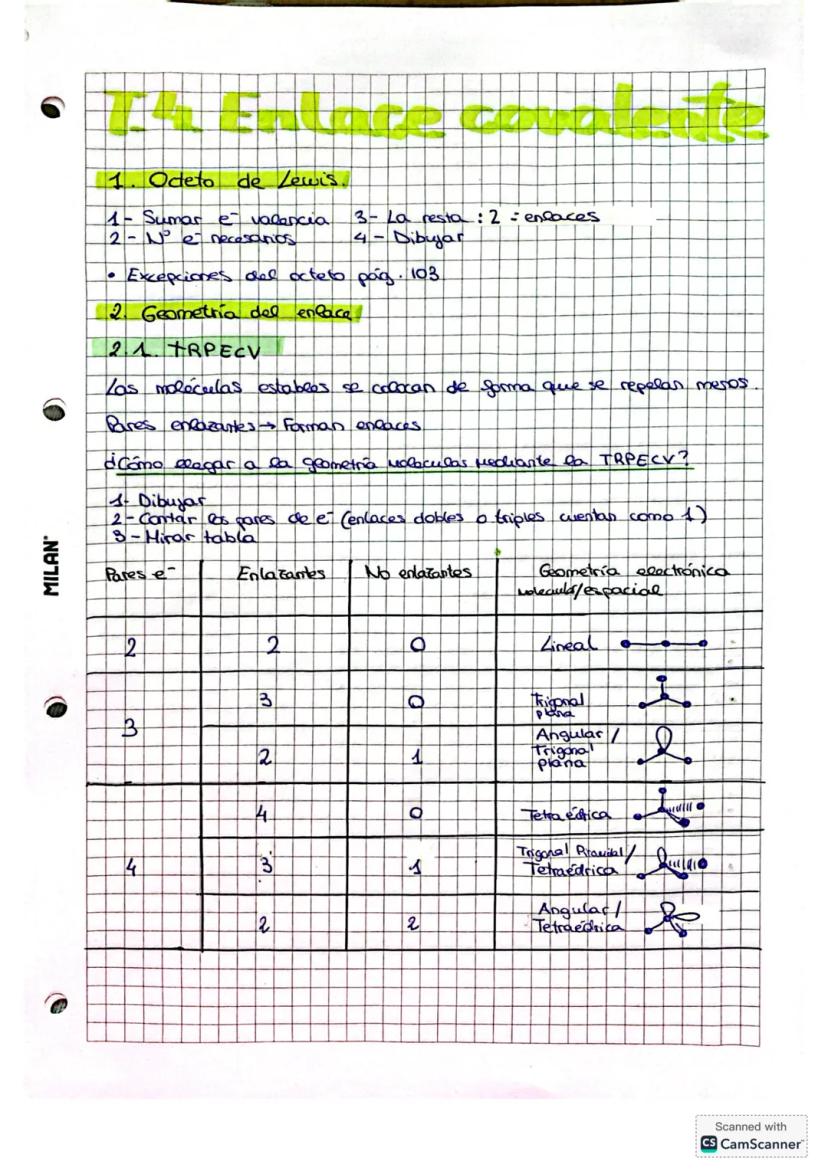 T.4 Enlace covalente
1. Octeto de Lewis.
1- Sumar e⁻ valencia 3- La resta : 2 = enlaces
2- Nº e⁻ necesarios 4- Dibujar
• Excepciones del octeto pág. 103
2. Geometría del enlace
2.1. TRPECV
Las moléculas estables se colocan de forma que se repelan menos.
Pares enlazantes → Forman enlaces
¿Cómo llegar a la geometría molecular mediante la TRPECV?
1- Dibujar
2- Contar los pares de e⁻ (enlaces dobles o triples cuentan como 1)
3- Mirar tabla
MILAN
Pares e⁻ Enlazantes No enlazantes Geometría electrónica
molecular/espacial
2 2 0 Lineal
3 3 0 Trigonal
plana
2 1 Angular /
Trigonal
plana
4 4 0 Tetraédrica
3 1 Trigonal Piramidal /
Tetraédrica
2 2 Angular /
Tetraédrica
Scanned with
CS CamScanner